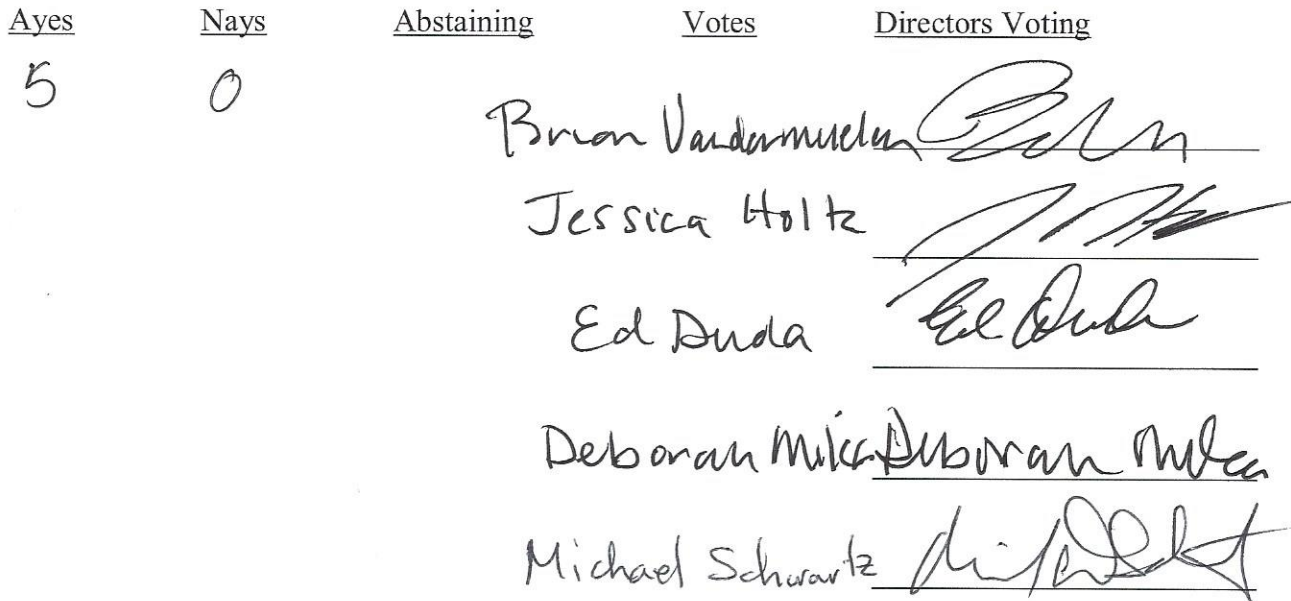 Ayes Nays Abstaining Votes Directors Voting
5 0
Brian Vandermuelen
Jessica Holtz
Ed Duda Ed Duda
Deborah Milka Deborah Milka
Michael Schwartz